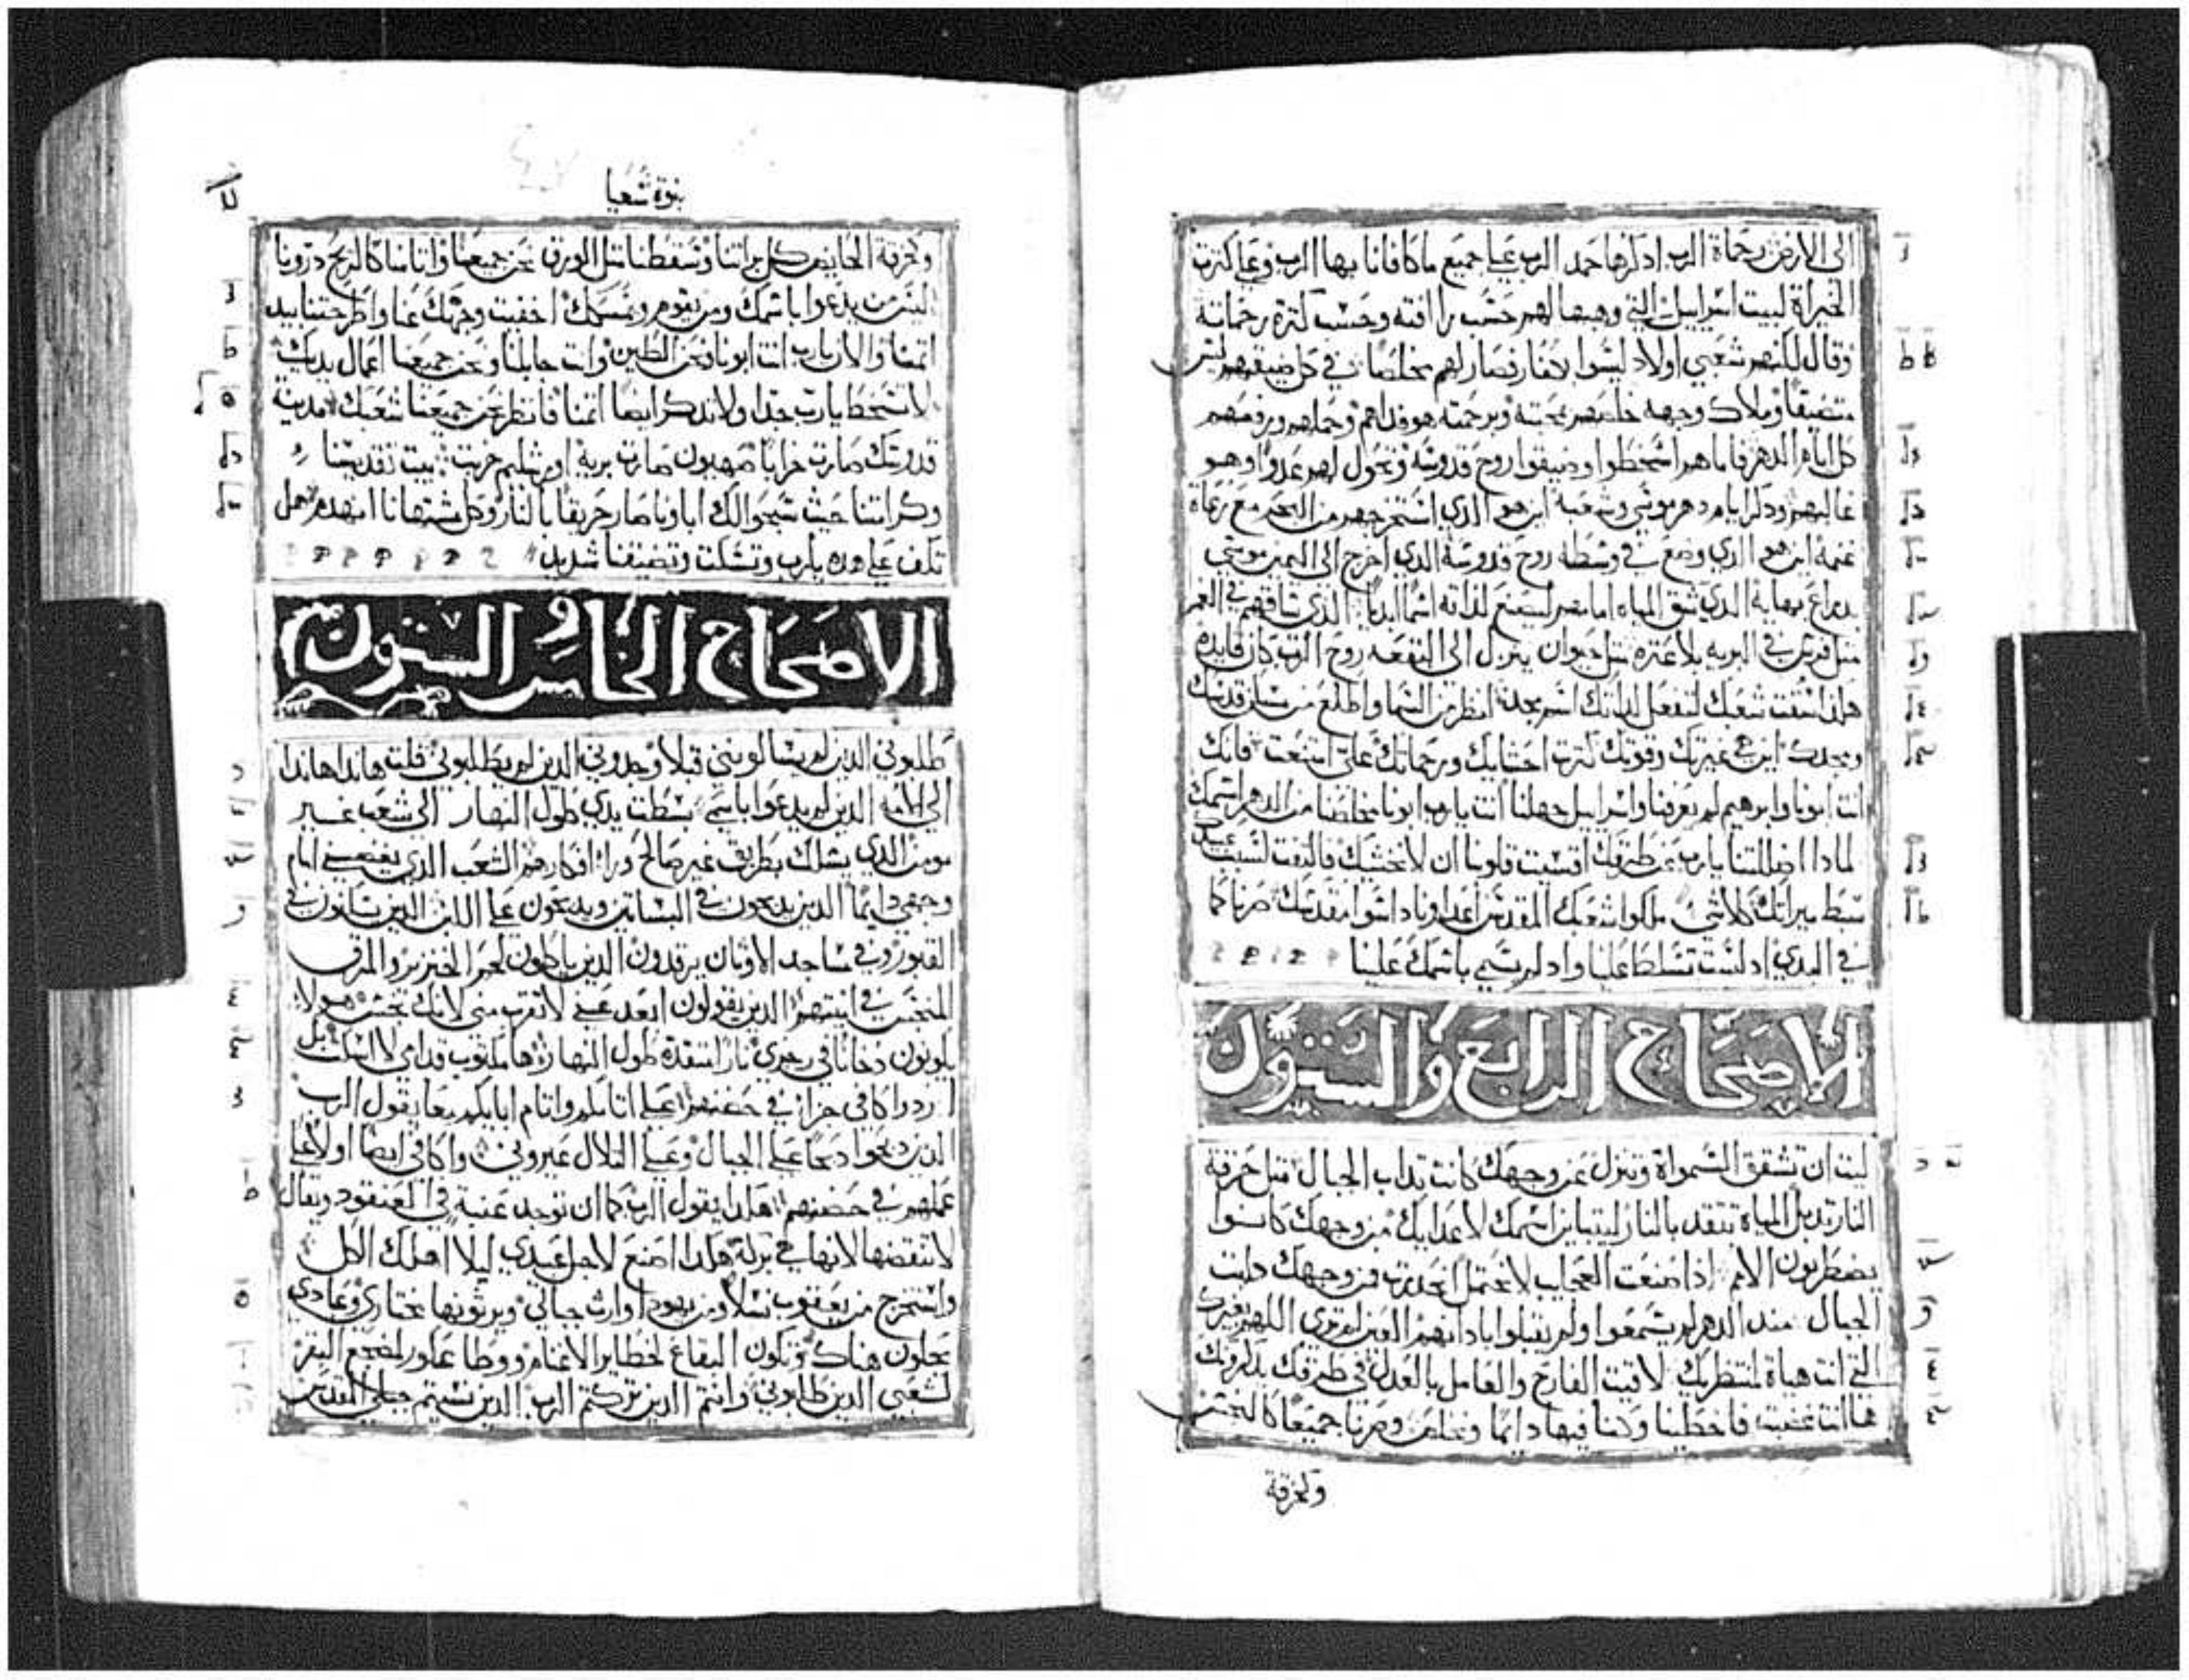 الى الارض رحماة الرب ادكرها حمد الرب على جميع ما كافانا بها الرب وعلى كترت
الخيراة لبيت اسراييل التي وهبها لهم حسب رافته وحسب كترة رحماته
وقال لكنهم شعبي اولاد ليسوا لاكفار فصار لهم مخلصا في كل ضيقهم ليس
متضيقا وملاك وجهه خلصهم بمحبته وبرحمته هو فداهم وحملهم ورفعهم
كل ايام الدهر فاما هم اسخطوا وضيقوا روح قدوسه وتحول لهم عدوا وهو
غالبهم ودكر ايام دهر موسى وشعبه اين هو الدي استخرجهم من البحر مع رعاة
غنمه اين هو الدي وضع في وسطه روح قدوسه الدي اخرج الى اليمين موسى
بدراع بهايه الدي شق المياه امامهم ليصنع لداته اسما ابديا الدي ساقهم في الغمر
متل فرس في البريه بلا عتره متل حيوان ينزل الى البقعه روح الرب كان قايده
هكدا سقت شعبك لتفعل لداتك اسم مجد انظر من السما واطلع من مسكن قدسك
ومجدك اين هي غيرتك وقوتك كترت احشايك ورحماتك علي امتنعت فانك
انت ابونا وابرهيم لم يعرفنا واسراييل جهلنا انت يا رب ابونا مخلصنا من الدهر اسمك
لمادا اضللتنا يا رب عن طرقك اقسيت قلوبنا ان لا نخشيك فالتفت لسبب عبيدك
سبط ميراتك كلا شي ملكوا شعبك المقدس اعداونا داسوا مقدسك صرنا كما
في البدي اد لست تسلط علينا واد لم يسمى باسمك علينا
الاصحاح الرابع والستون
ليت ان تشقق السمواة وتنزل عن وجهك كانت تداب الجبال متل حرقة
النار تدبل المياة تتقد بالنار ليتباين اسمك لاعدايك من وجهك كانوا
يضطربون الامم ادا صنعت العجايب لا نحتمل انحدرت من وجهك دابت
الجبال مند الدهر لم يسمعوا ولم يقبلوا بادانهم العين لم ترى اللهم بغيرك
التي انت هياة لمنتظريك لاقيت الفارح والعامل بالعدل في طرقك يدكرونك
ها انت غضبت فاخطينا وكنا فيها دايما ونخلص وصرنا جميعا كالنجس
ولخرقة
نبوة شعيا
ولخرقة الحايض كل براتنا وسقطنا متل الورق نحن جميعنا واتامنا كالريح درونا
ليس من يدعوا باسمك ومن يقوم ويمسك اخفيت وجهك عنا واطرحتنا بيد
اتمنا والان يا رب انت ابونا نحن الطين وانت جابلنا ونحن جميعنا اعمال يديك
لا تسخط يا رب جدا ولا تدكر ايضا اتمنا فانظر نحن جميعنا شعبك مدينة
قدوسك صارت خرابا صهيون صارت برية اورشليم خربت بيت تقديسنا
وكرامتنا حيث سبحوا لك اباونا صار حريقا بالنار وكل مشتهانا انهدم هل
تكف على هده يا رب وتسكت وتضيقنا شديد
الاصحاح الخامس والستون
طلبوني الدين لم يسالونني قبلا وجدوني الدين لم يطلبوني قلت هاندا هاندا
الى الامه الدين لم يدعوا باسمي بسطت يدي طول النهار الى شعب غير
مومن الدي يسلك بطريق غير صالح ورا افكارهم الشعب الدي يغضبني امام
وجهي دايما الدين يدبحون في البساتين ويدبحون على اللبن الدين يسكنون في
القبور وفي مساجد الاوتان يرقدون الدين ياكلون لحم الخنزير والمرق
المنجس في انيتهم الدين يقولون ابعد عني لا تقرب مني لانك نجس هولا
يكونون دخانا في رجزي نارا متقدة طول النهار ها مكتوب قدامي لا اسكت بل
اردوا كافى جزاء في حضنهم على اتامكم واتام ابايكم معا يقول الرب
الدين دبحوا دبحا على الجبال وعلى التلال عيروني واكافي ايضا اولا على
عملهم في حضنهم هكدا يقول الرب كما ان توجد عنبه في العنقود ويقال
لا تنقضها لانها هي بركة هكدا اصنع لاجل عبيدي ليلا اهلك الكل
واستخرج من يعقوب نسلا ومن يهودا وارت جبالي ويرتونها مختاري وعبادي
يحلون هناك وتكون البقاع لحظاير الاغنام ووطا عاكور لمضجع البقر
لشعبي الدين طلبوني وانتم الدين تركتم الرب الدين نسيتم جبلي المقدس